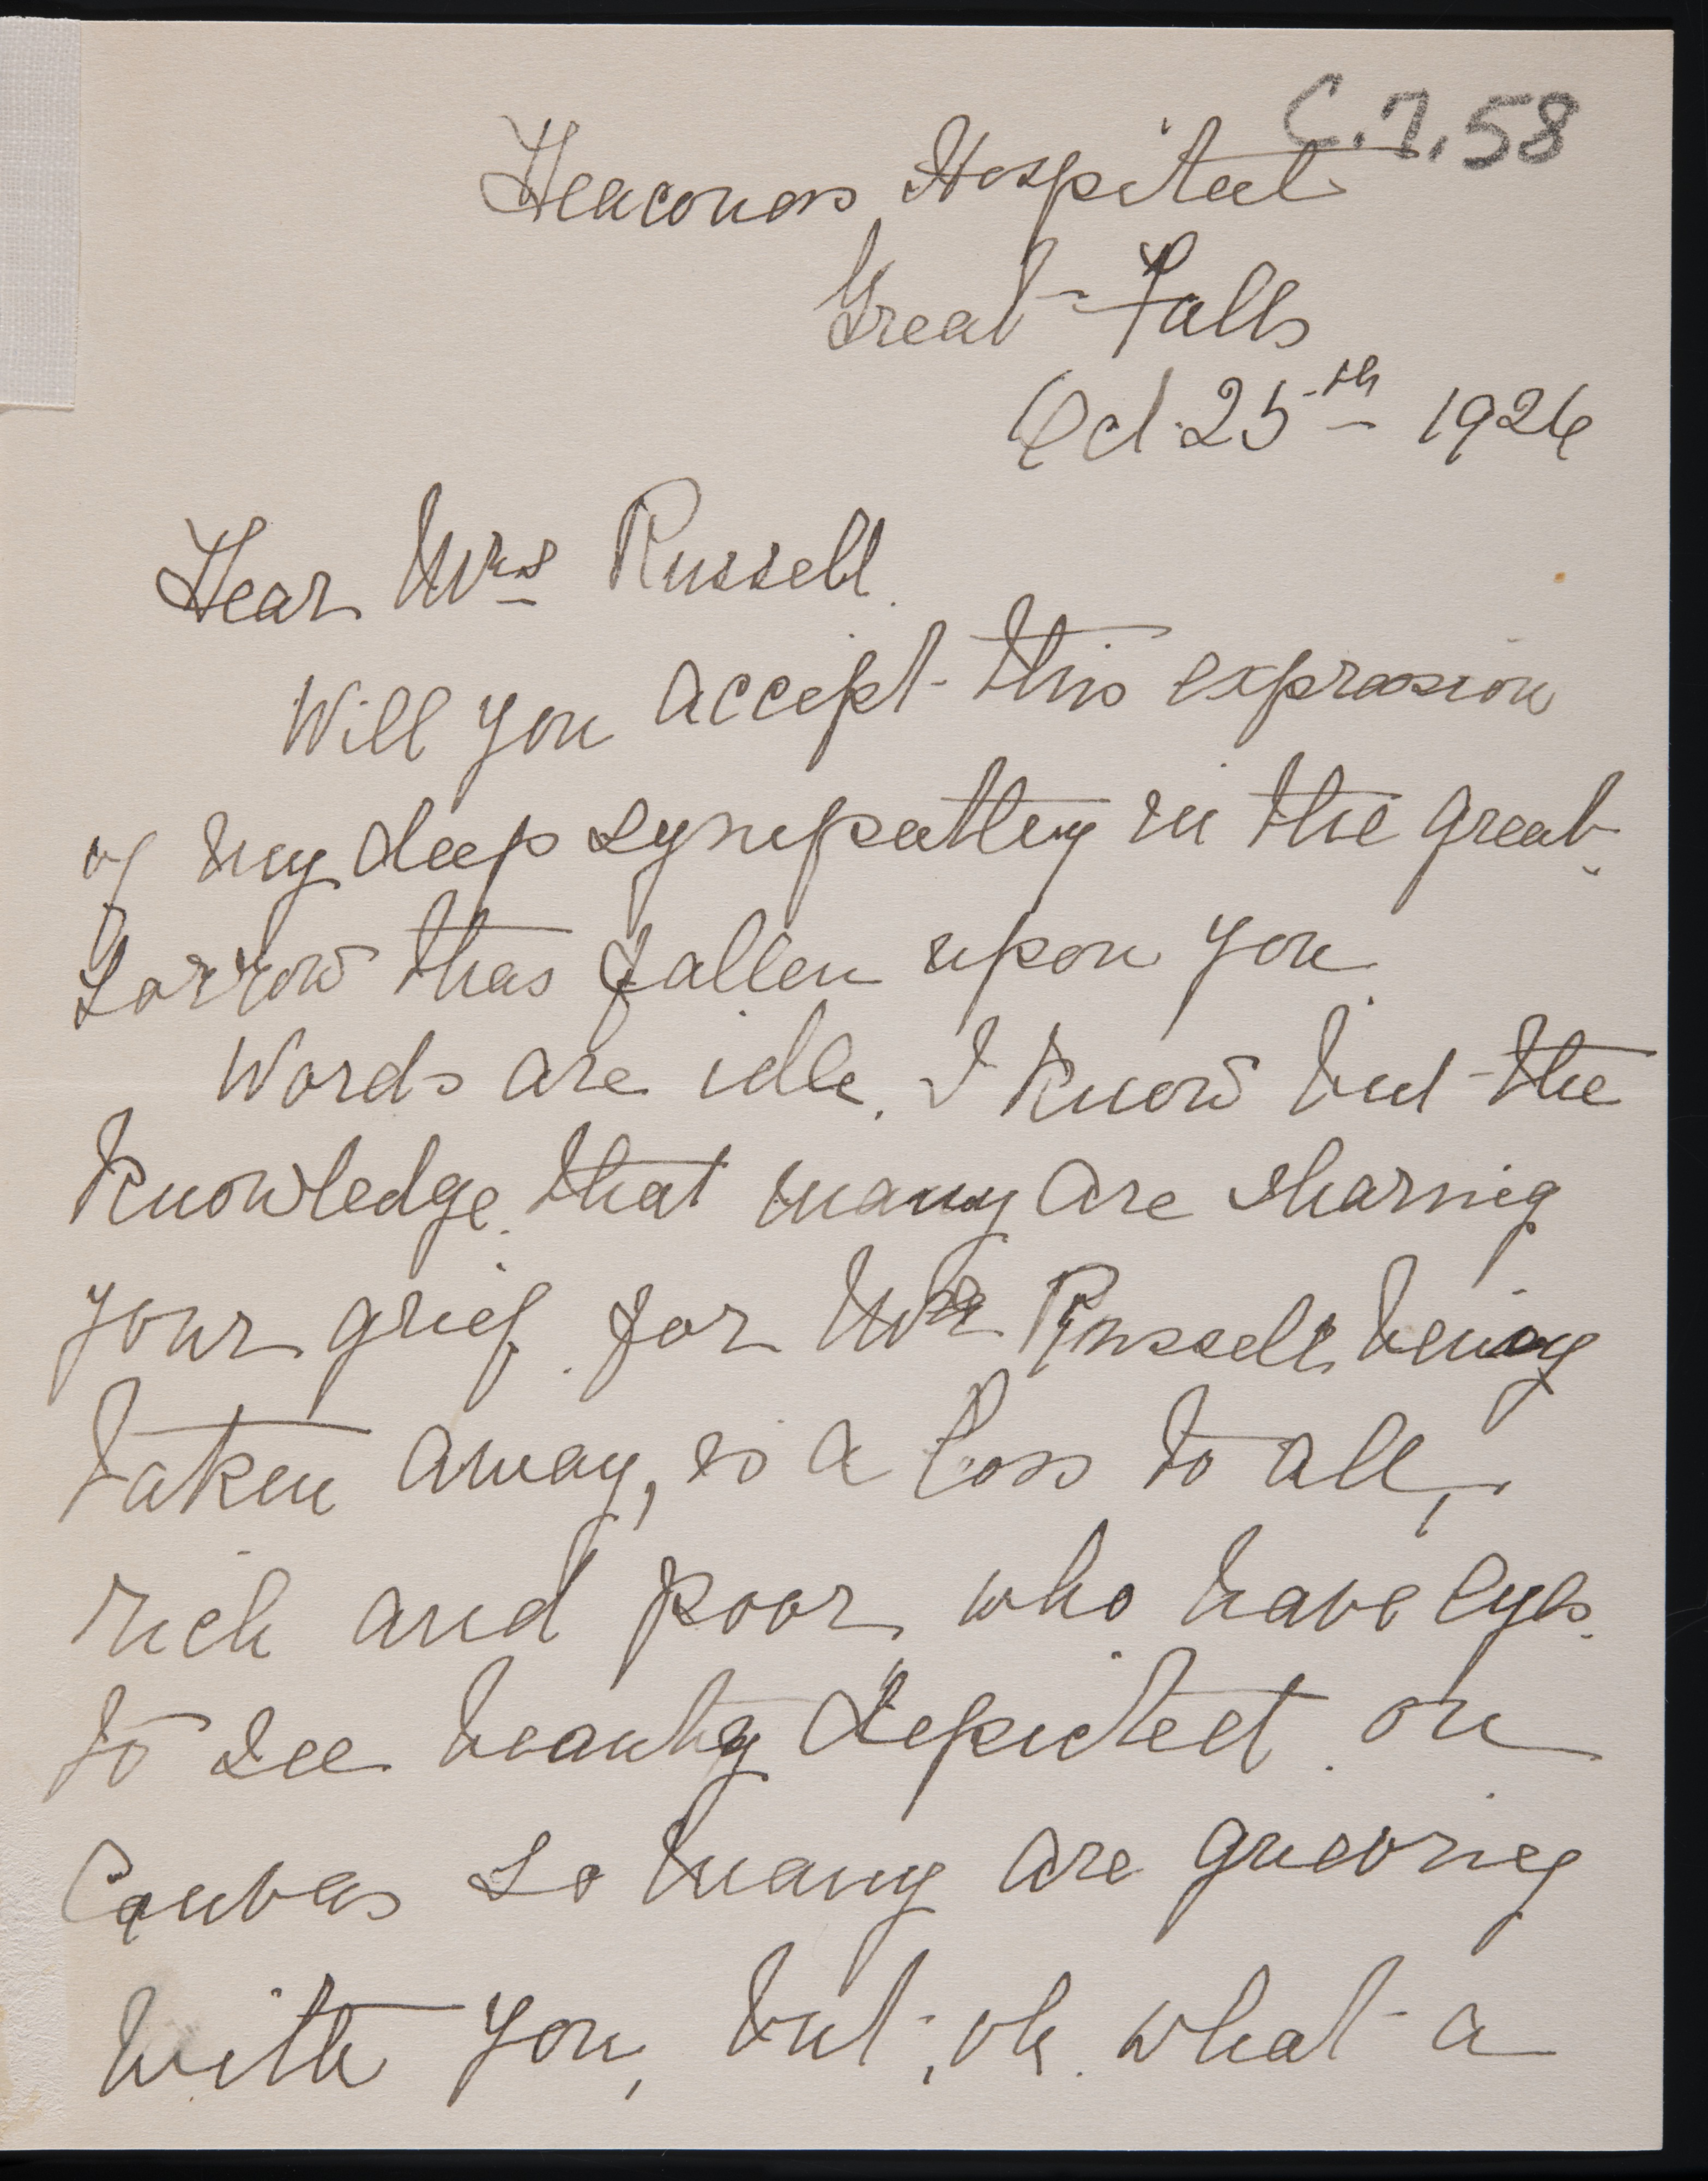 C.7.58
Deaconess Hospital
Great Falls
Oct 25th 1926
Dear Mrs Russell.
Will you accept this expression
of my deep sympathy in the great
sorrow thas fallen upon you.
Words are idle, I know but the
knowledge that many are sharing
your grief for Mr Russell being
taken away, is a loss to all,
rich and poor, who have eyes
to see beauty depicted on
canvas so many are grieving
with you, but, oh what a